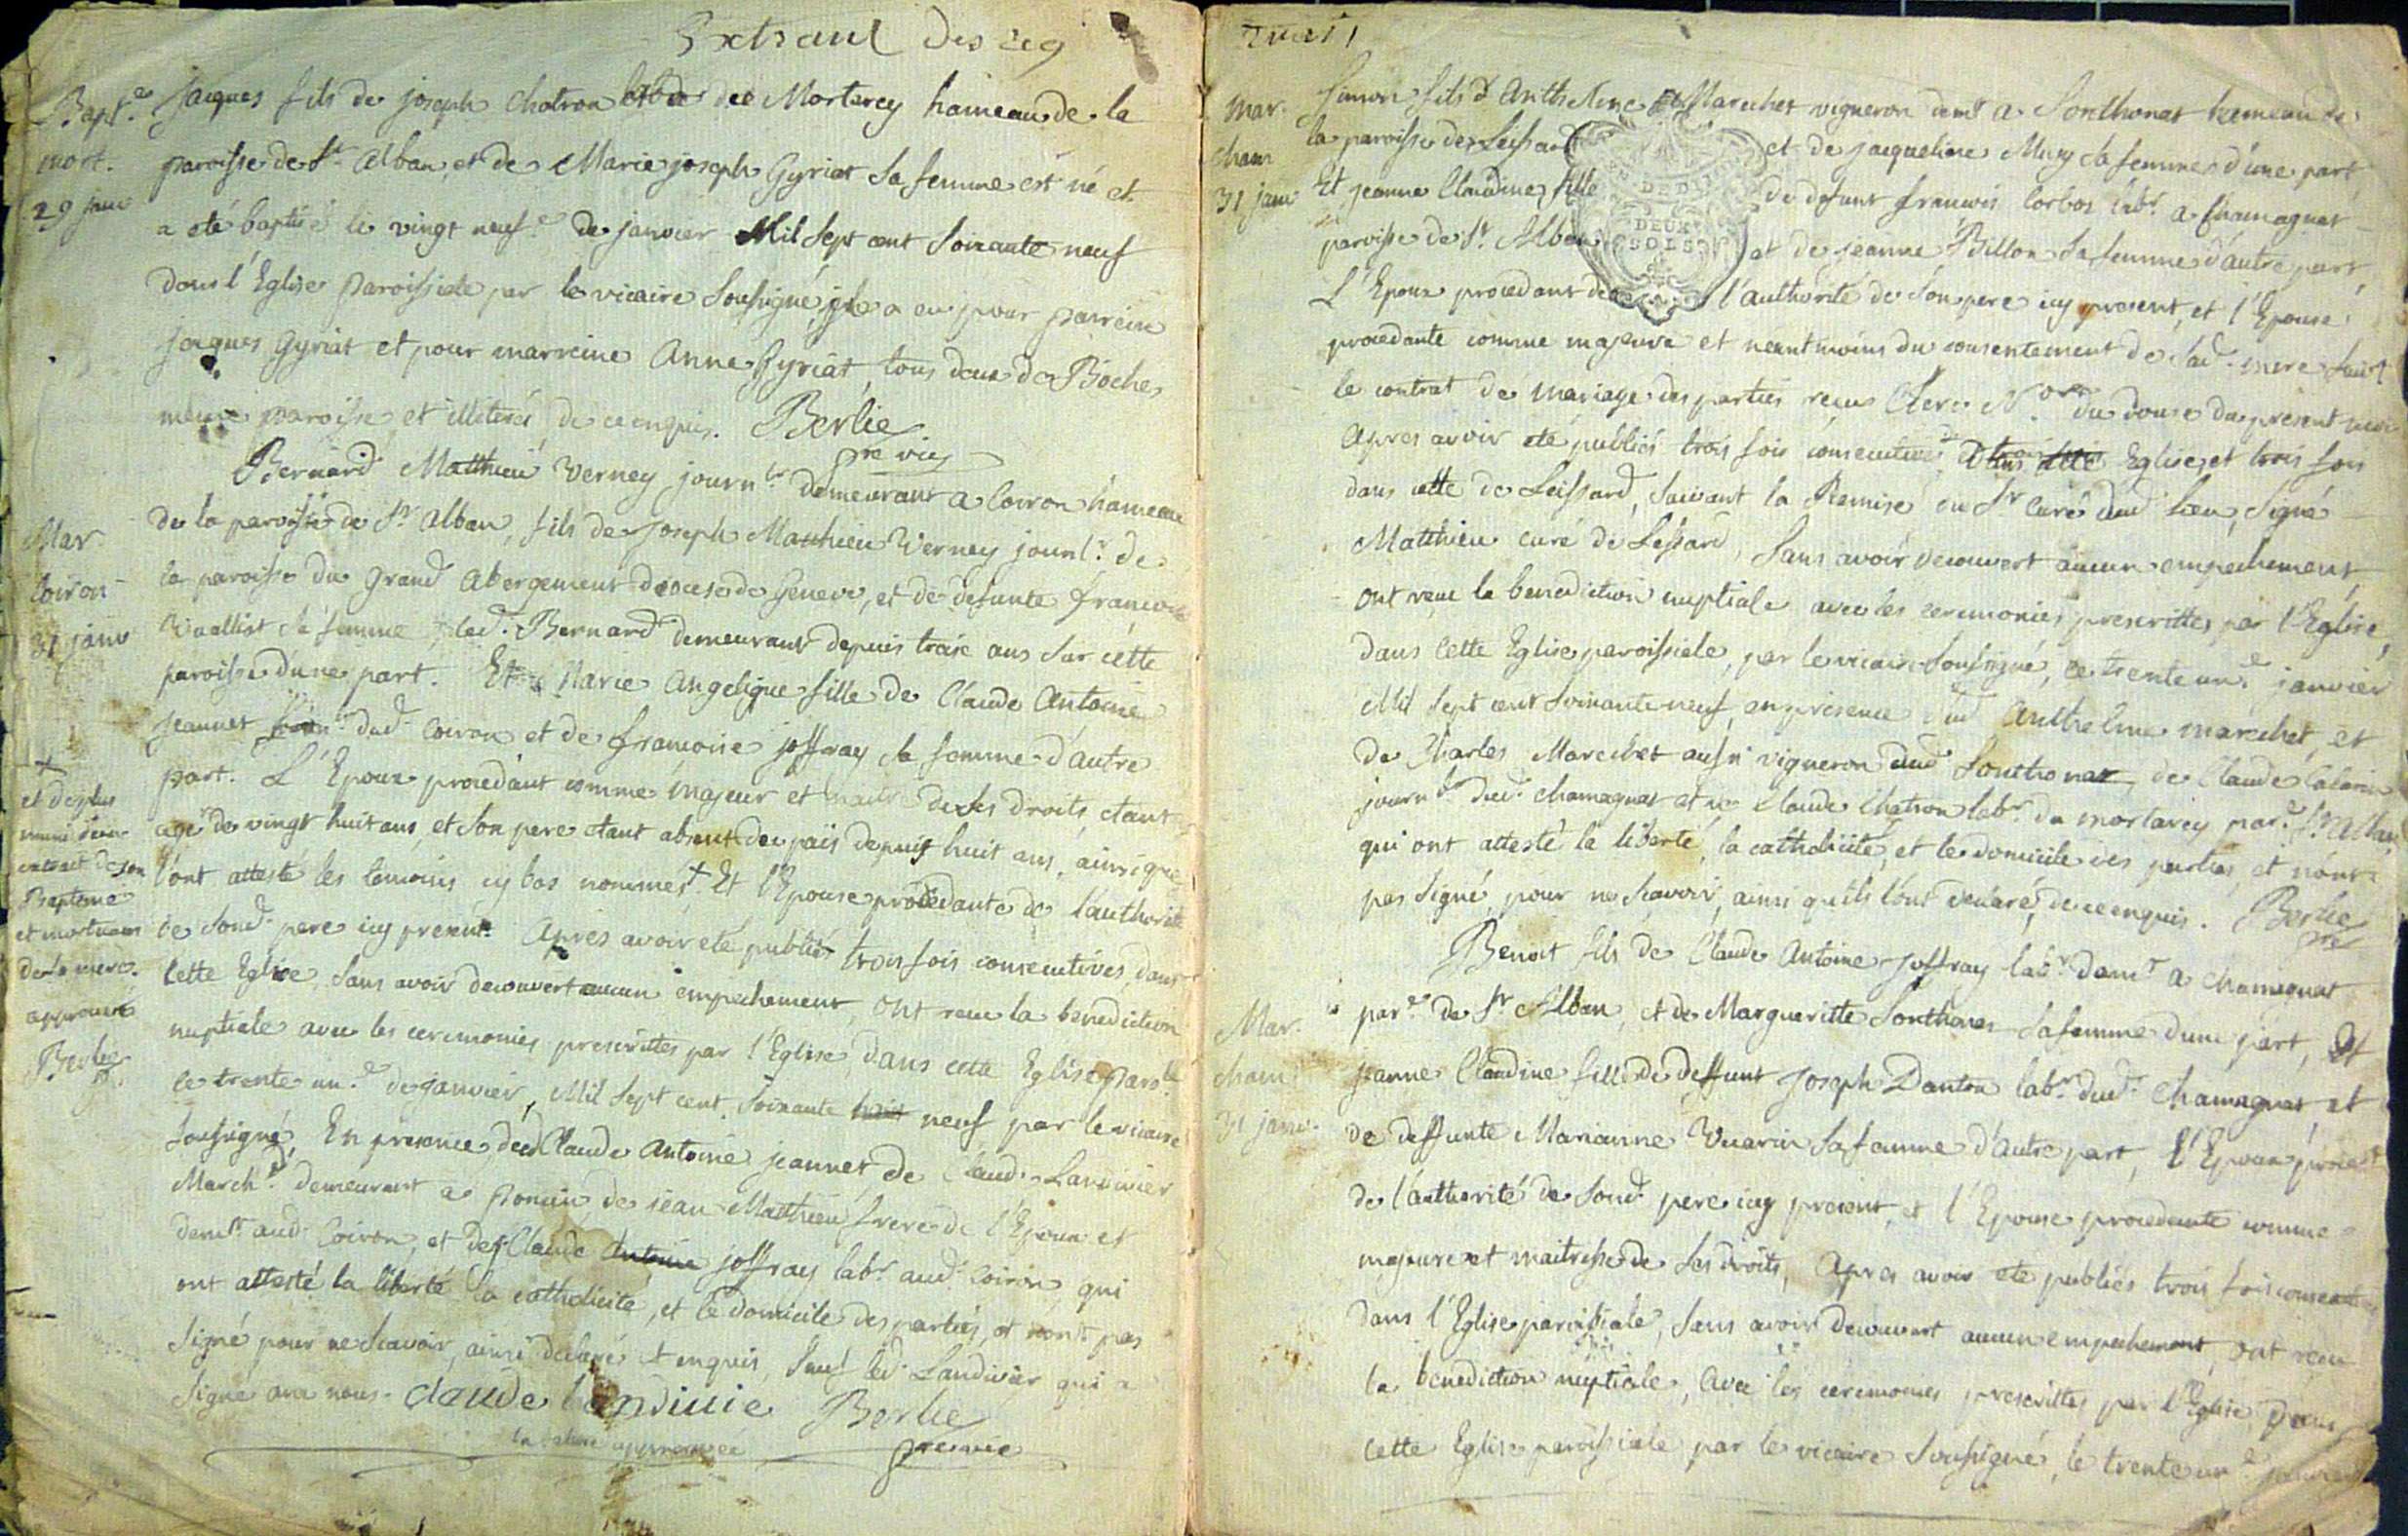 Extrait des reg
Bapt.e
mort.
29 janv
Jacques fils de joseph Chatron de Mortarey hameau de la
paroisse de St alban, et de Marie joseph Gyriat sa femme est né et
a eté baptisé le vingt neuf.e de janvier Mil Sept cent Soixante neuf
dans l'Eglise paroissiale par le vicaire Soussigné, il a eu pour parrein
jaques Gyriat et pour marreine Anne Gyriat, tous deux de Boches
même paroisse et illiterés, de ce enquis. Berlie
pre vic
Mar
Coiron
31 janv
Bernard Matthieu Verney journ.lr demeurant a Coiron hameau
de la paroisse de St alban, fils de Joseph Matthieu Verney journ.lr de
la paroisse du Grand Abergement diocese de Geneve, et de defunte françoise
Vuallist sa femme, led. Bernard demeurant depuis treise ans sur cette
paroisse d'une part. Et Marie Angelique fille de Claude Antoine
jeannet dud. Coiron et de françoise joffray sa femme d'autre
part. L'Epoux procedant comme majeur et maitre de ses droits etant
agé de vingt huit ans, et son pere etant absent du païs depuis huit ans, ainsi que
l'ont attesté les temoins cy bas nommés + Et l'Epouse procedante de l'authorité
de sond. pere icy present. Apres avoir eté publiés trois fois consecutives, dans
cette Eglise, sans avoir decouvert aucun empechement, ont recu la benediction
nuptiale avec les ceremonies prescrittes par l'Eglise, dans cette Eglise par.le
le trente un.e de janvier, Mil Sept cent Soixante huit neuf par le vicaire
soussigné, En presence dud Claude Antoine jeannet de Claude Landivier
March.d demeurant a poncin de jean Matthieu frere de l'Epoux et
dem.t aud Coiron, et de Claude Antoine joffray lab.r aud. Coiron qui
ont attesté la liberté la catholicité, et le domicile des parties, et n'ont pas
signé pour ne scavoir, ainsi declaré et enquis, sauf led. Landivier qui a
signé avec nous. Claude landivie Berlie
la rature approuvée pre vic
+
et de plus
muni d'un
extrait de son
Bapteme
et mortuaire
de sa mere.
approuvé
Berlie
Mar.
Cham
31 janv
Simon fils d'Anthelme Marechet vigneron dem.t a Sonthonat hameau de
la paroisse de Leissard et de jacqueline Muzy sa femme d'une part,
DE DEUX SOLS
Et jeanne Claudine, fille de defunt françois Corbos lab.r a Chamagnat
paroisse de St Alban et de jeanne Billon sa femme d'autre part,
L'Epoux procedant de l'authorité de son pere icy present, et l'Epouse
procedante comme majeure et neantmoins du consentement de sad. mere suiv.t
le contrat de mariage des parties recu Clerc N.ore du douze du present mois
Apres avoir eté publiés trois fois consecutives Eglise, et trois fois
dans cette de Leissard, suivant la Remise du Sr Curé dud. lieu, signé
Matthieu curé de Lessard, Sans avoir decouvert aucun empechement,
ont recu la benediction nuptiale avec les ceremonies prescrittes par l'Eglise,
dans cette Eglise paroissiale, par le vicaire Soussigné, ce trente un.e janvier
Mil Sept cent Soixante neuf, en presence dud Anthelme marechet, et
de Charles Marechet aussi vigneron aud Sonthonat, de Claude
journ.lr dud. chamagnat et de Claude Chatron lab.r du mortarey par.e St Alban,
qui ont attesté la liberté, la catholicité, et le domicile des parties, et n'ont
pas signé pour ne scavoir, ainsi qu'ils l'ont declaré, de ce enquis. Berlie
pre
Mar.
Cham
31 janv.
Benoit fils de Claude Antoine joffray lab.r dem.t a Chamagnat
par.e de St Alban, et de Margueritte Sonthonas sa femme d'une part, Et
jeanne Claudine fille de deffunt Joseph Danton lab.r dud. Chamagnat, et
de deffunte Marianne Vuarin sa femme d'autre part, l'Epoux proced.t
de l'authorité de sond. pere icy present, et l'Epouse procedante comme
majeure et maitresse de ses droits, Apres avoir eté publiés trois fois consecutives
dans l'Eglise paroissiale, sans avoir decouvert aucun empechement, ont recu
la benediction nuptiale, avec les ceremonies prescrittes par l'Eglise, Dans
cette Eglise paroissiale par le vicaire Soussigné, le trente un.e janvier